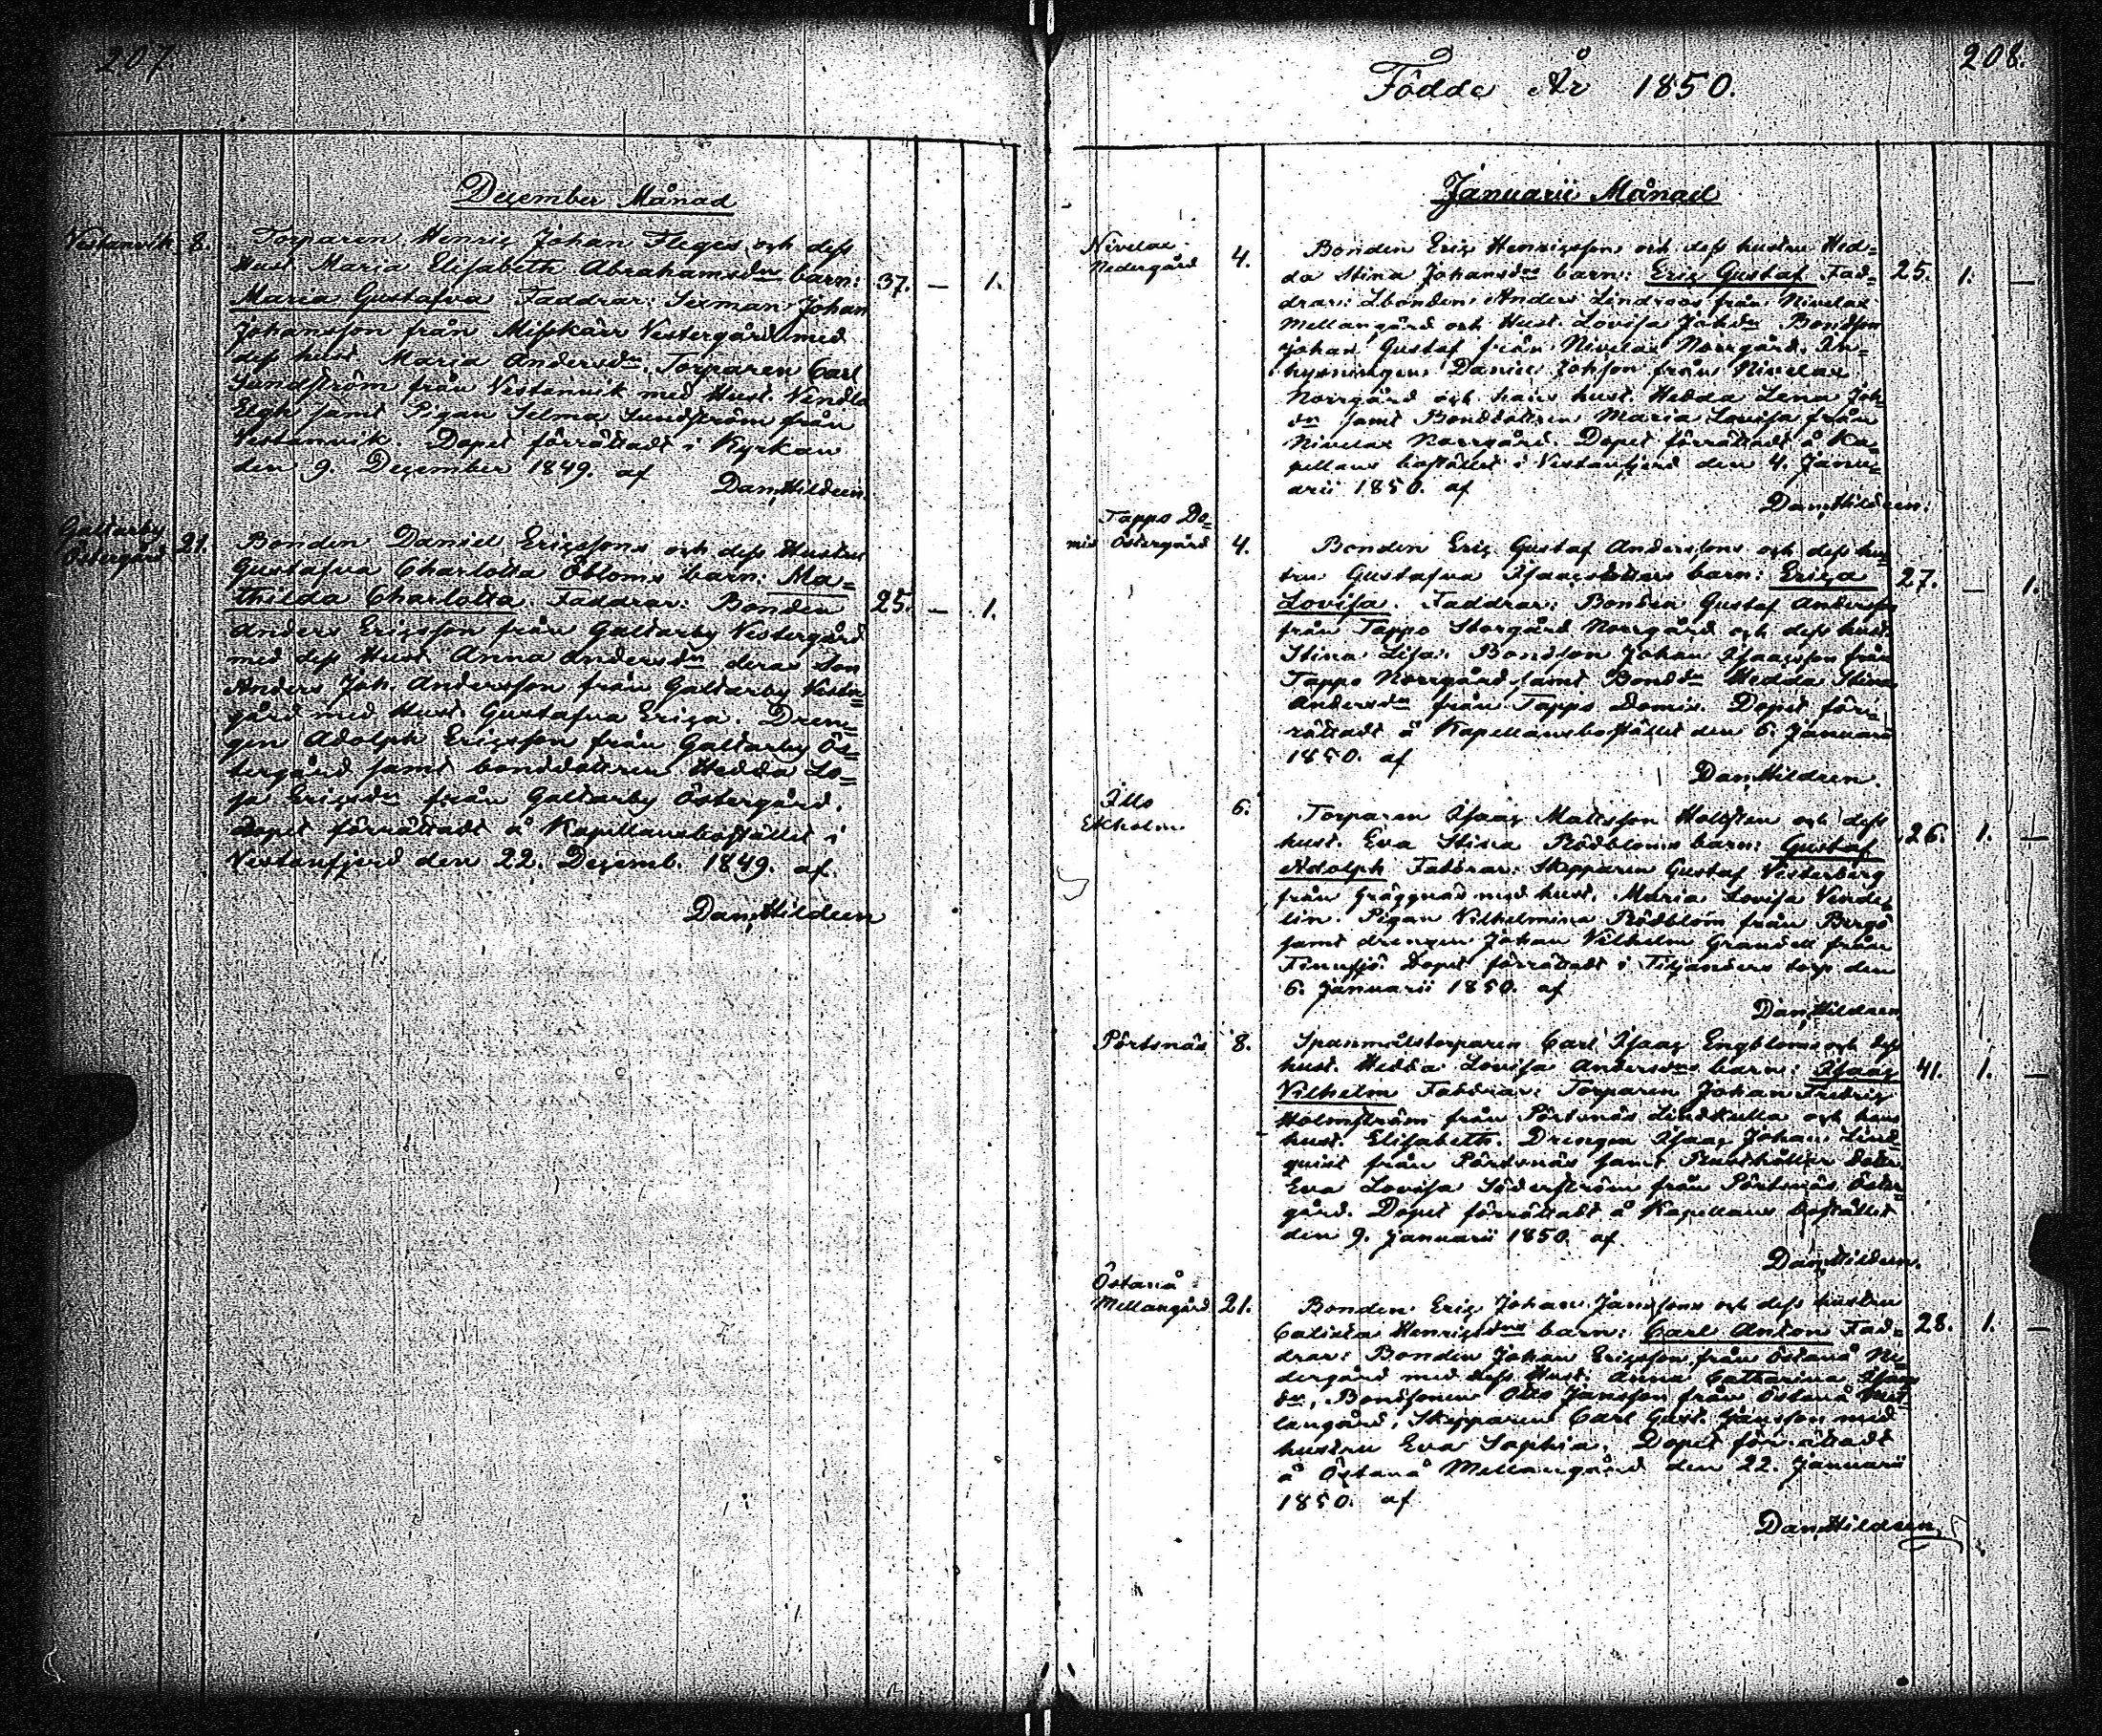 207.
December Månad
Vestanvik 8. Torparen Henric Johan Fleges och dess
Hust. Maria Elisabeth Abrahamsdrs barn:
Maria Gustafva Faddrar: Sexman Johan 37. — 1.
Johansson från Misskärr Vestergård med
dess hust. Maria Andersdr. Torparen Carl
Sundström från Vestanvik med Hust. Vendla
Elgh samt Pigan Selma Sundström från
Vestanvik. Dopet förrättadt i Kyrkan
den 9. December 1849. af
Dan. Hildeen.
Galtarby
Östergård 21. Bonden Daniel Ericssons och dess Hustru
Gustafva Charlotta Öbloms barn: Ma=
thilda Charlotta. Faddrar: Bonden 25. — 1.
Anders Ericsson från Galtarby Vestergård
med dess Hust. Anna Andersdr deras Son
Anders Joh. Andersson från Galtarby Vester=
gård med Hust. Gustafva Erica. Dren=
gen Adolph Ericsson från Galtarby Ös=
tergård samt bonddottren Hedda Lo=
sa Ericsdr från Galtarby Östergård.
Dopet förrättadt å Kapellansbostället i
Vestanfjerd den 22. Decemb. 1849. af.
Dan. Hildeen
208.
Födde År 1850.
Januarii Månad
Nivelax
Nedergård 4. Bonden Eric Henricssons och dess hustru Hed=
da Stina Johansdrs barn: Eric Gustaf. Fad= 25. 1. —
drar: Lbonden Anders Lindroos från Nivelax
Mellangård och Hust. Lovisa Johdr. Bondson
Johan Gustaf från Nivelax Norrgård. In=
hysningen Daniel Johsson från Nivelax
Norrgård och hans hust. Hedda Lena Joh=
dr samt Bonddottren Maria Lovisa från
Nivelax Norrgård. Dopet förrättadt å Ka=
pellans bostället i Vestanfjerd den 4. Janu=
arii 1850. af
Dan. Hildeen.
Tappo Do=
mis Östergård 4. Bonden Eric Gustaf Anderssons och dess hu=
stru Gustafva Isaacsdotters barn: Erica 27. — 1.
Lovisa. Faddrar: Bonden Gustaf Anderss
från Tappo Storgård Norrgård och dess hust.
Stina Lisa. Bondson Johan Isaacsson från
Tappo Norrgård samt Bonddr Hedda Stina
Andersdr från Tappo Domis. Dopet för=
rättadt å Kapellansbostället den 6. Januarii
1850. af
Dan. Hildeen.
Illo
Ekholm 6. Torparen Isaac Mattsson Hollsten och dess
hust. Eva Stina Rödbloms barn: Gustaf 26. 1. —
Adolph Faddrar: Skepparen Gustaf Vesterberg
från Gräggnäs med hust. Maria Lovisa Vende=
lin. Pigan Vilhelmina Rödblom från Bergö
samt drengen Johan Vilhelm Grandell från
Dopet förrättadt i torp den
6. Januarii 1850. af
Dan. Hildeen
Pörtsnäs 8. Spanmålstorparen Carl Isaac Engbloms och dess
hust. Hedda Lovisa Andersdrs barn: Isaac 41. 1. —
Vilhelm Faddrar: Torparen Johan Fredric
Holmström från Pörtsnäs Lindkulla och hans
hust. Elisabeth. Drengen Isaac Johan Lind=
quist från Pörtsnäs samt Rusthållar dottr.
Eva Lovisa Söderström från Pörtsnäs Öster=
gård. Dopet förrättadt å Kapellans bostället
den 9. Januarii 1850. af
Dan. Hildeen.
Östanå
Mellangård 21. Bonden Eric Johan Janssons och dess hustru
Calista Henricsdrs barn: Carl Anton Fad= 28. 1. —
drar: Bonden Johan Ericsson från Östanå Ne=
dergård med dess Hust. Anna Catharina Isaacs
dr, Bondsonen Otto Jansson från Östanå Mel=
langård, Skepparen Carl Gust. Jansson med
hustru Eva Sophia. Dopet förrättadt
å Östanå Mellangård den 22. Januarii
1850. af
Dan. Hildeen.